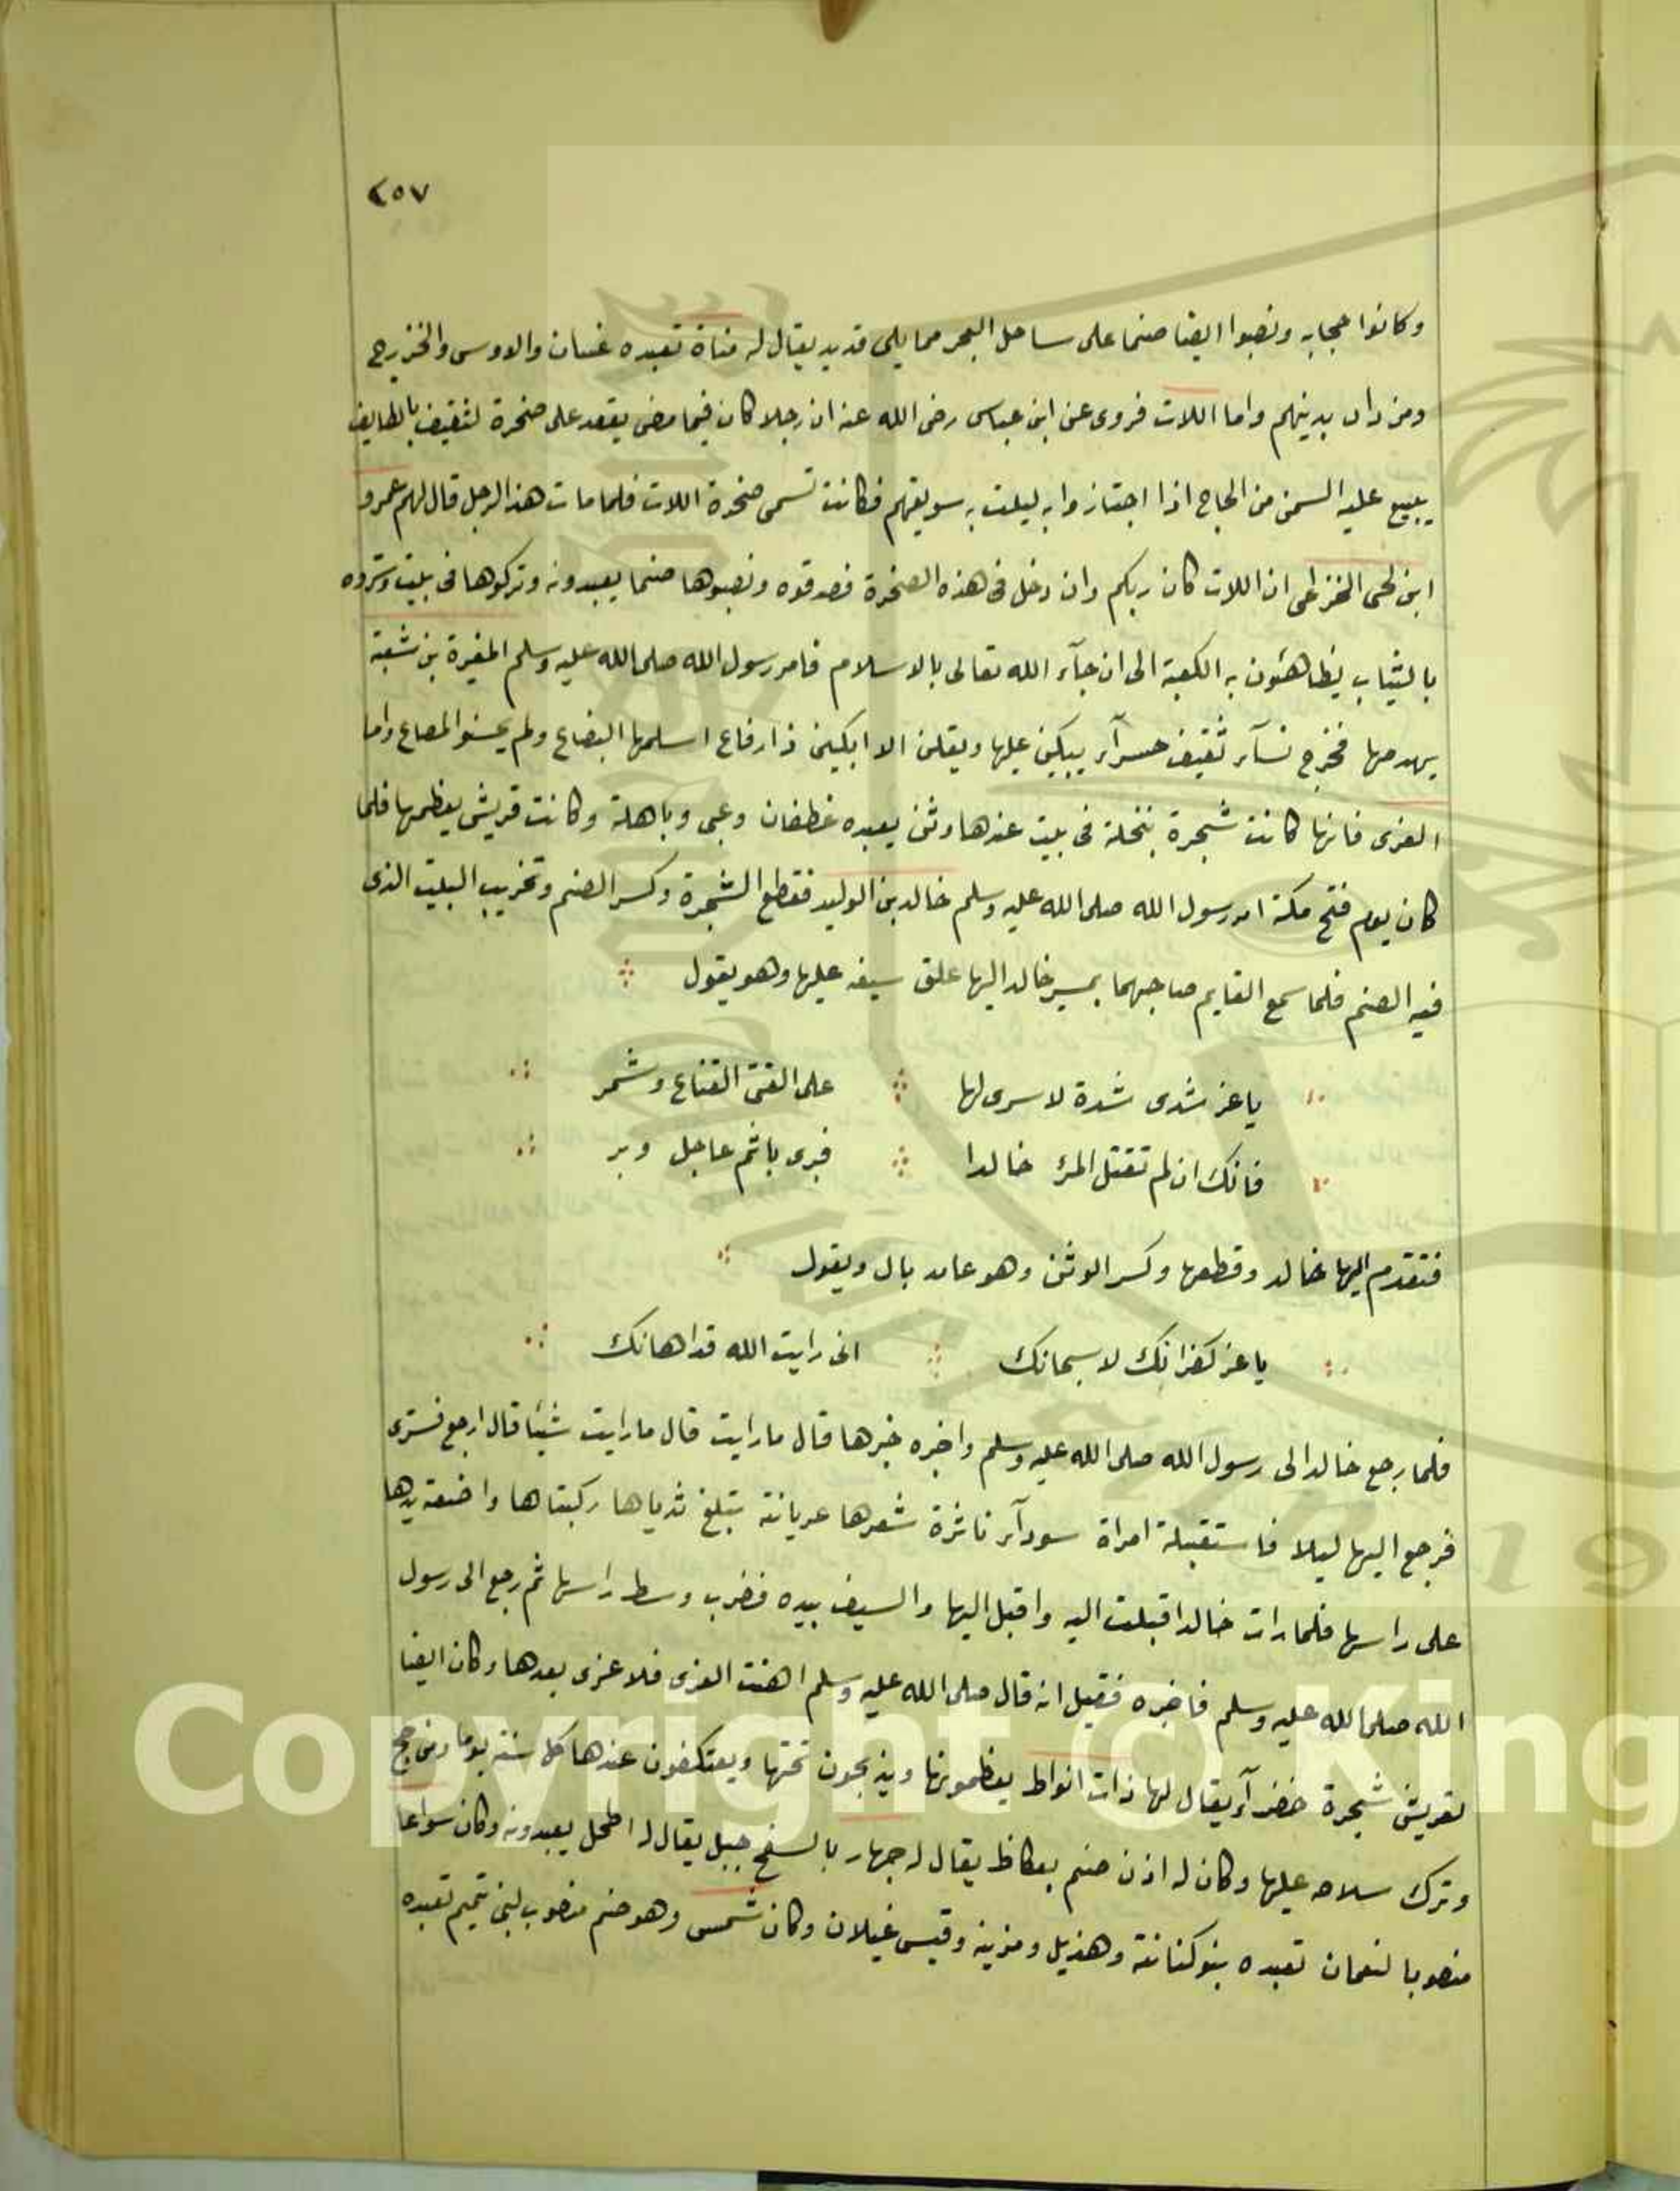 ٢٥٧
وكانوا حجابه ونصبوا ايضا صنما على ساحل البحر مما يلى قديد يقال له مناة تعبده غسان والاوس والخزرج
ومن دان بدينهم واما اللات فروى عن ابن عباس رضى الله عنه ان رجلا كان فيما مضى يقعد على صخرة لثقيف بالطايف
يبيع عليه السمن من الحاج اذا اجتازوا به ليلت به سويقهم فكانت تسمى صخرة اللات فلما مات هذا الرجل قال لهم عمرو
ابن لحى الخزاعى ان اللات كان ربكم وان دخل فى هذه الصخرة فصدقوه ونصبوها صنما يعبدونه وتركوها فى بيت وستروه
بالثياب يظاهئون به الكعبة الى ان جآء الله تعالى بالاسلام فامر رسول الله صلى الله عليه وسلم المغيرة بن شعبة
يهدمها فخرج نسآء ثقيف حسرآء يبكين عليها ويقلن الا ابكين ذا رفاع اسلمها البضاع ولم يحسنوا المصاع واما
العزى فانها كانت شجرة بنخلة فى بيت عندها وثن يعبده غطفان وغى وباهلة وكانت قريش يعظمها فلما
كان يوم فتح مكة امر رسول الله صلى الله عليه وسلم خالد بن الوليد فقطع الشجرة وكسر الصنم وتخريب البيت الذى
فيه الصنم فلما سمع القايم صاحبهما بمسير خالد اليها علق سيفه عليها وهو يقول
ياعز شدى شدة لا سرى لها على الفتى القناع وشمر
فانك ان لم تقتل المرئ خالدا فبرى باثم عاجل وبر
فتقدم اليها خالد وقطعها وكسر الوثن وهو عامد بال ويقول
ياعز كفرانك لا سبحانك انى رايت الله قد اهانك
فلما رجع خالد الى رسول الله صلى الله عليه وسلم واخبره خبرها قال ما رايت قال ما رايت شيئا قال ارجع فسترى
فرجع اليها ليلا فاستقبلة امراة سودآء ناثرة شعرها عريانة تبلغ ثدياها ركبتاها واضعة يدها
على راسها فلما رات خالد اقبلت اليه واقبل اليها والسيف بيده فضرب وسط راسها ثم رجع الى رسول
الله صلى الله عليه وسلم فاخبره فقيل انه قال صلى الله عليه وسلم اهنت العزى فلا عزى بعدها وكان ايضا
لقريش شجرة خضرآء يقال لها ذات انواط يعظمونها ويذبحون تحتها ويعتكفون عندها كل سنة يوما ومن حج
وترك سلاحه عليها وكان له اذن صنم بعكاظ يقال له جهار بالسفح جبل يقال له اطحل يعبدونه وكان سواعا
منصوبا لنعمان تعبده بنو كنانة وهذيل ومزينه وقيس غيلان وكان شمس وهو صنم منصوب لبنى تميم تعبده
Copyright © King
19